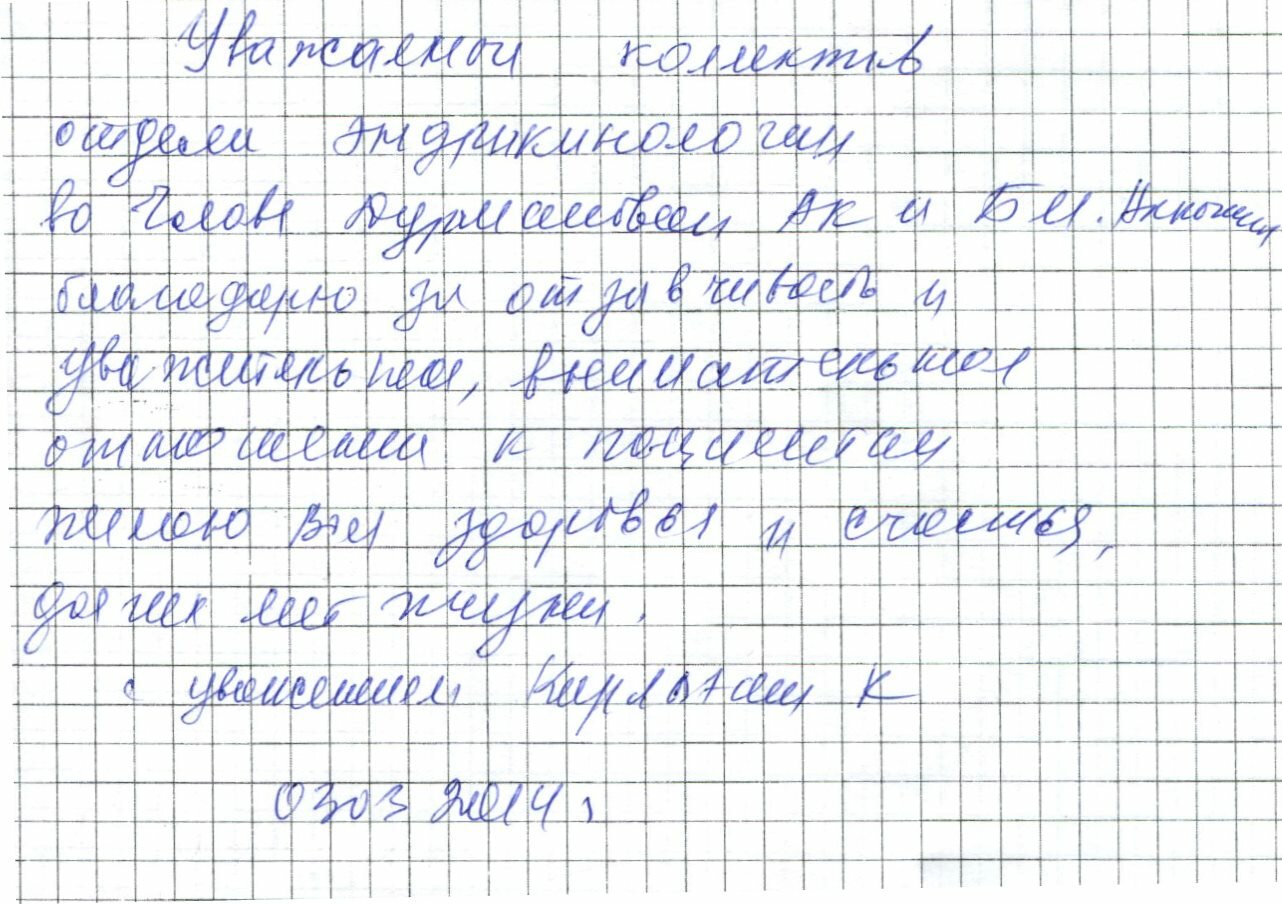 Уважаемый коллектив
отдела эндрикинологии
во Главе Дурмановой АК и Б.М.
благодарю за отзывчивость и
уважительная, внимательная
отношении к пациентам
желаю вам здоровья и счастья,
долгих лет жизни.
с уважением К
0303 2014г